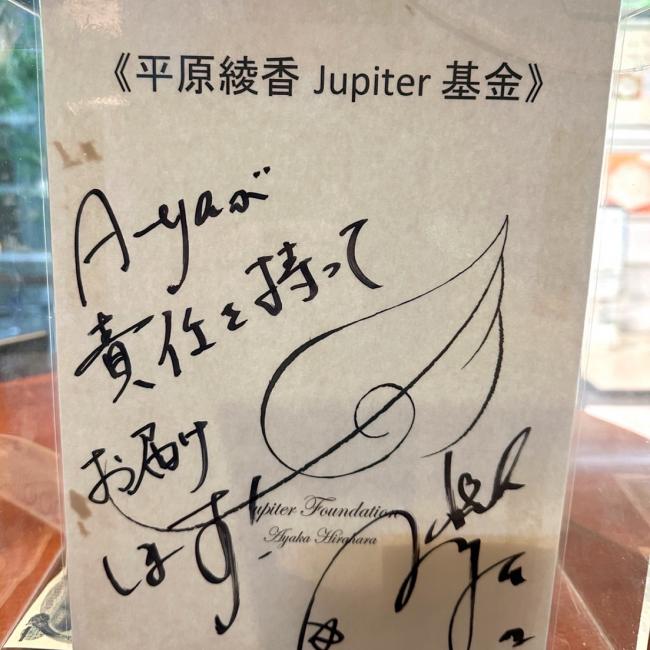 《平原綾香 Jupiter 基金》
A-yaが
責任を持って
お届け
します!
Jupiter Foundation
Ayaka Hirahara